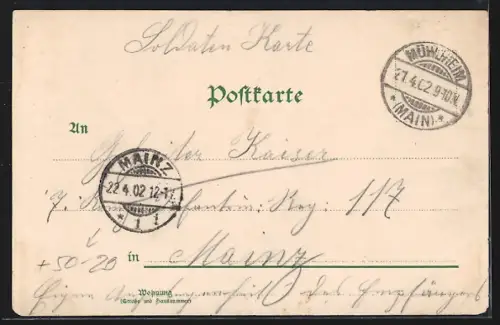 Soldaten Karte
MÜHLHEIM
21.4.02.9-10.N.
* (MAIN). *
Postkarte
An Gefreiter Kaiser
MAINZ
22.4.02.12-1
* 1
7. Infanterie Reg. 117
in Mainz
+50-20
Wohnung
(Straße und Hausnummer)
Eigne Angelegenheit des Empfängers